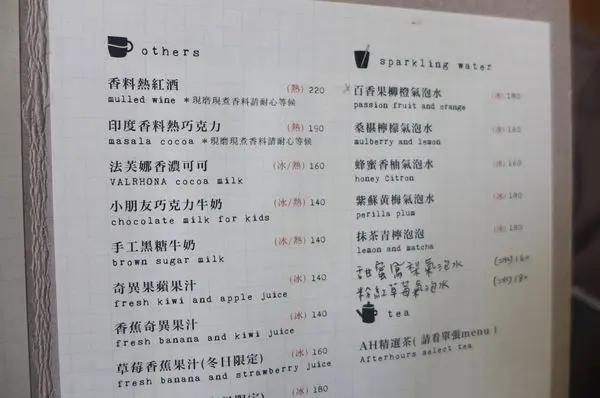 others
香料熱紅酒 (熱) 220
mulled wine *現磨現煮香料請耐心等候
印度香料熱巧克力 (熱) 190
masala cocoa *現磨現煮香料請耐心等候
法芙娜香濃可可 (冰/熱) 160
VALRHONA cocoa milk
小朋友巧克力牛奶 (冰/熱) 140
chocolate milk for kids
手工黑糖牛奶 (冰/熱) 140
brown sugar milk
奇異果蘋果汁 (冰) 140
fresh kiwi and apple juice
香蕉奇異果汁 (冰) 140
fresh banana and kiwi juice
草莓香蕉果汁(冬日限定) (冰) 160
fresh banana and strawberry juice
(冰) 180
sparkling water
百香果柳橙氣泡水 (冰) 180
passion fruit and orange
桑椹檸檬氣泡水 (冰) 160
mulberry and lemon
蜂蜜香柚氣泡水 (冰) 160
honey Citron
紫蘇黃梅氣泡水 (冰) 180
perilla plum
抹茶青檸泡泡 (冰) 180
lemon and matcha
甜蜜窩梨氣泡水 (冰) 160
粉紅草莓氣泡水 (冰) 180
tea
AH精選茶(請看單張menu)
Afterhours select tea